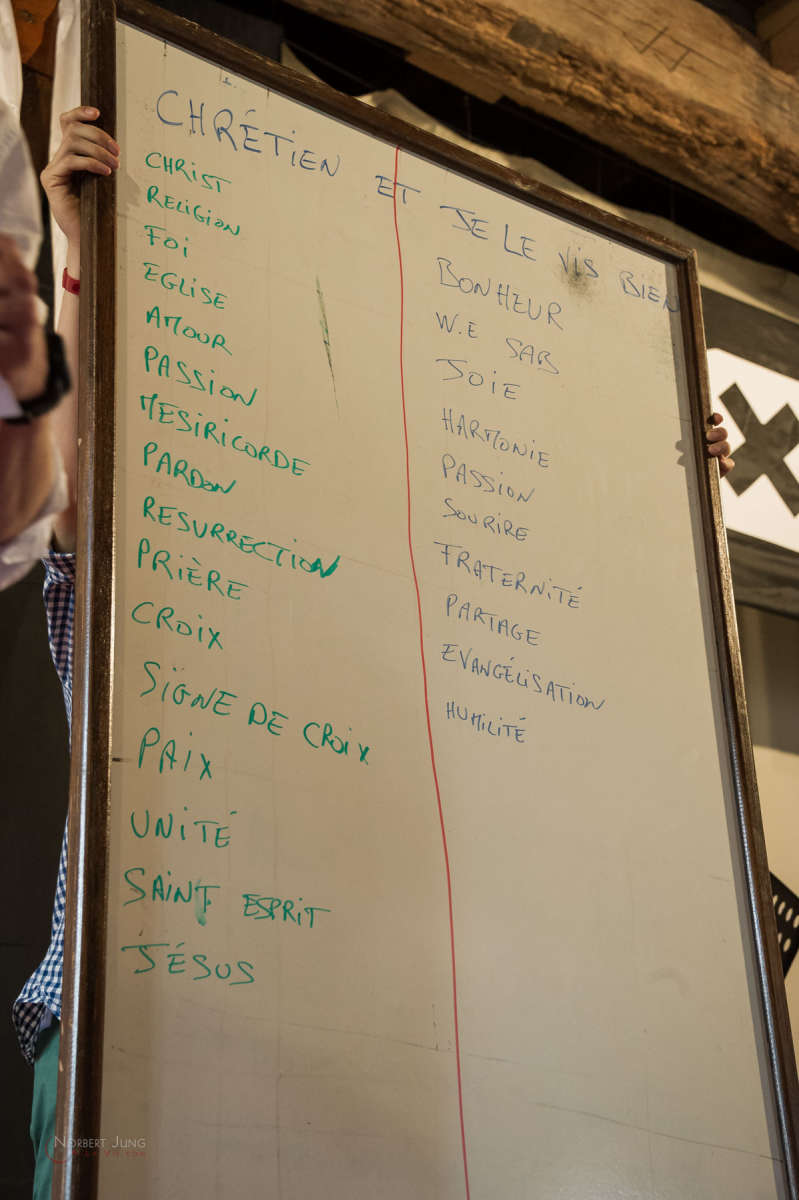 CHRÉTIEN ET JE LE VIS BIEN
CHRIST
RELIGION
FOI
EGLISE
AMOUR
PASSION
MESIRICORDE
PARDON
RESURRECTION
PRIÈRE
CROIX
SIGNE DE CROIX
PAIX
UNITÉ
SAINT ESPRIT
JÉSUS
BONHEUR
W.E SAB
JOIE
HARMONIE
PASSION
SOURIRE
FRATERNITÉ
PARTAGE
EVANGÉLISATION
HUMILITÉ
NORBERT JUNG